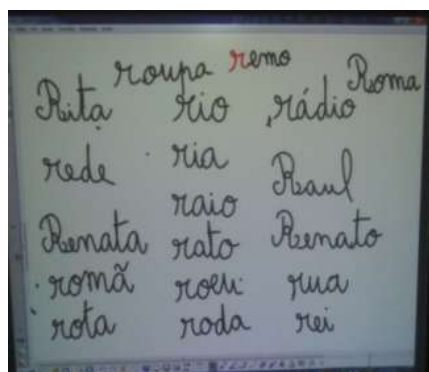 roupa remo Roma
Rita rio rádio
rede ria Raul
raio
Renata rato Renato
romã roeu rua
rota roda rei